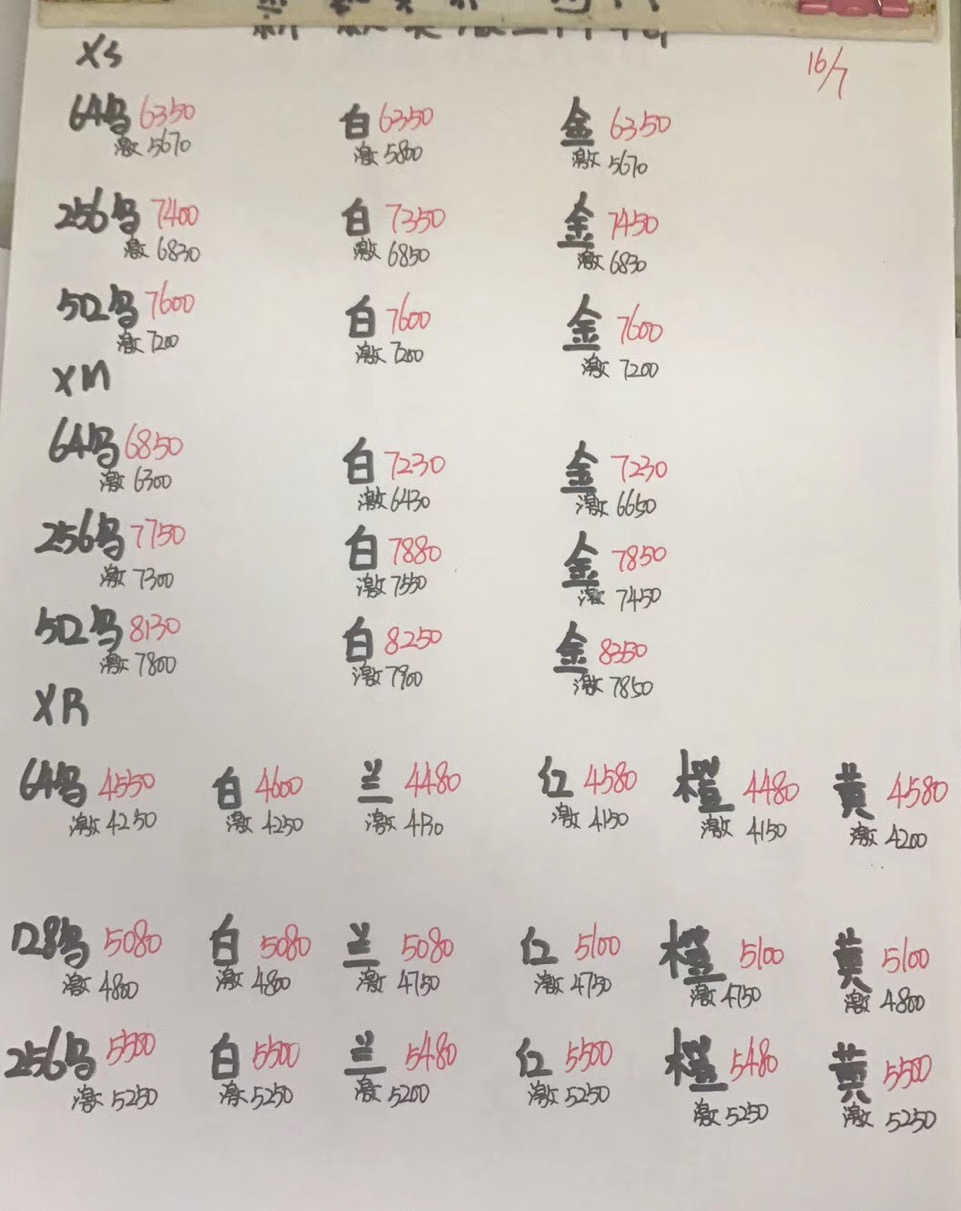 16/7
XS
64乌 6350 白 6350 金 6350
激 5670 激 5800 激 5670
256乌 7400 白 7350 金 7450
激 6830 激 6850 激 6830
512乌 7600 白 7600 金 7600
激 7200 激 7200 激 7200
XM
64乌 6850 白 7230 金 7230
激 6300 激 6430 激 6650
256乌 7750 白 7880 金 7850
激 7300 激 7550 激 7450
512乌 8130 白 8250 金 8350
激 7800 激 7900 激 7850
XR
64乌 4550 白 4600 兰 4480 红 4580 橙 4480 黄 4580
激 4250 激 4250 激 4130 激 4150 激 4150 激 4200
128乌 5080 白 5080 兰 5080 红 5100 橙 5100 黄 5100
激 4800 激 4800 激 4750 激 4750 激 4750 激 4800
256乌 5500 白 5500 兰 5480 红 5500 橙 5480 黄 5500
激 5250 激 5250 激 5200 激 5250 激 5250 激 5250